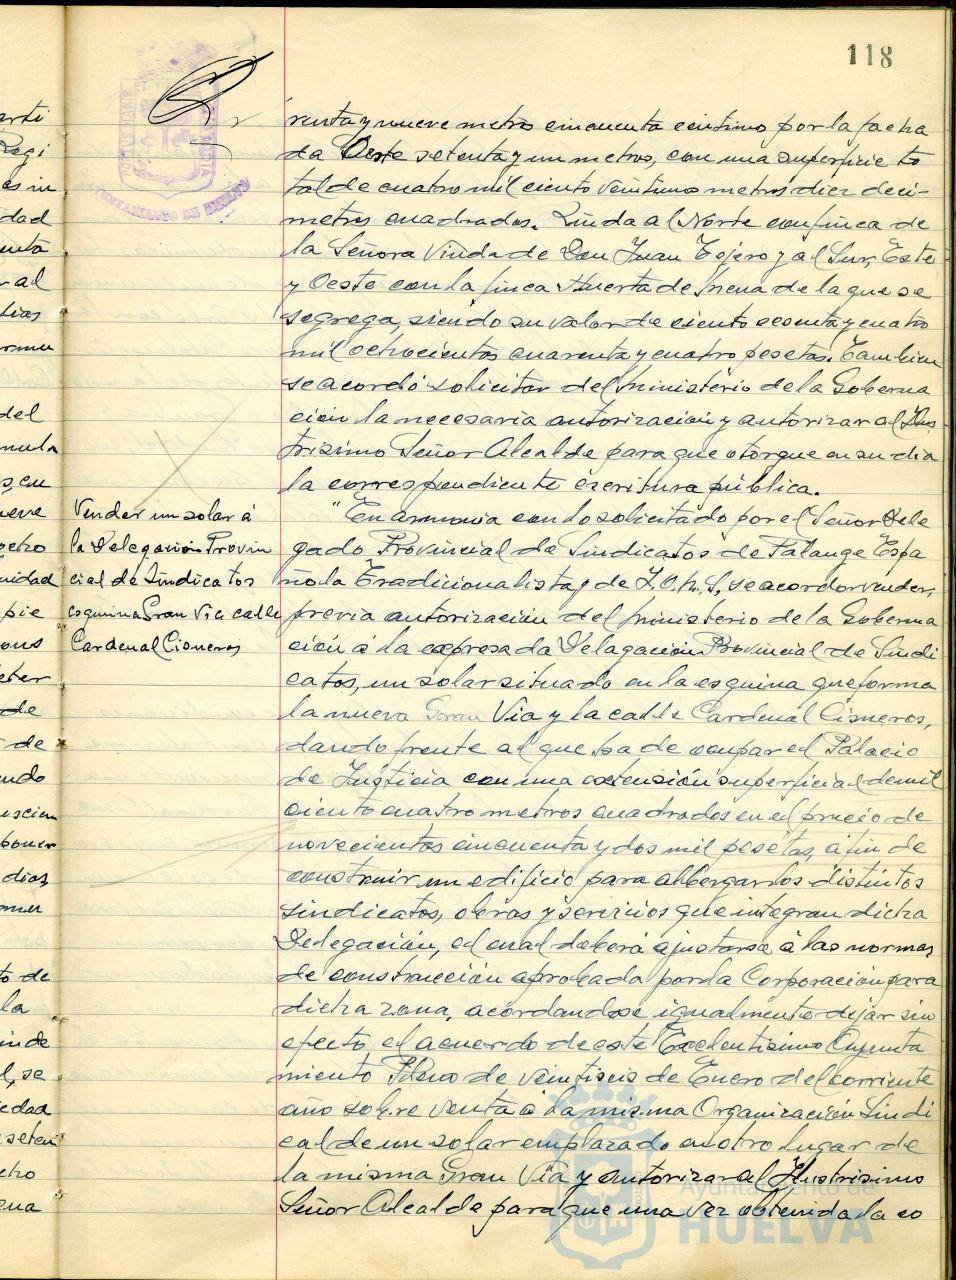 118
renta y nueve metro cincuenta centimo por la facha
da Oeste setenta y un metros, con una superficie to
tal de cuatro mil ciento veintiuno metros diez deci-
metros cuadrados. Linda al Norte con finca de
la Señora Viuda de Don Juan Tejero y al Sur, Este
y Oeste con la finca Huerta de Mena de la que se
segrega, siendo su valor de ciento sesenta y cuatro
mil ochocientas cuarenta y cuatro pesetas. Tambien
se acordó solicitar del Ministério de la Goberna
ción la necesaria autorización y autorizar al Ilus
trisimo Señor Alcalde para que otorgue en su dia
la correspondiente escritura pública.
Vender un solar á
la Delegación Provin
cial de Sindicatos
esquina Gran Via calle
Cardenal Cisneros
"En armonia con lo solicitado por el Señor Dele
gado Provincial de Sindicatos de Falange Espa
ñola Tradicionalista y de J.O.N.S, se acordó vender,
previa autorización del Ministerio de la Goberna
ción á la expresada Delegación Provincial de Sindi
catos, un solar situado en la esquina que forma
la nueva Gran Via y la calle Cardenal Cisneros,
dando frente al que ha de ocupar el Palacio
de Justicia con una extensión superficial de mil
ciento cuatro metros cuadrados en el precio de
novecientas cincuenta y dos mil pesetas, á fin de
construir un edificio para albergar los distintos
sindicatos, obras y servicios que integran dicha
Delegación, el cual deberá ajustarse á las normas
de construcción aprobada por la Corporación para
dicha zona, acordandose igualmente dejar sin
efecto el acuerdo de este Excelentisimo Ayunta
miento Pleno de veintiseis de Enero del corriente
año sobre venta á la misma Organización Sindi
cal de un solar emplazado en otro lugar de
la misma Gran Via y autorizar al Ilustrisimo
Señor Alcalde para que una vez obtenida la co
Ayuntamiento de
HUELVA